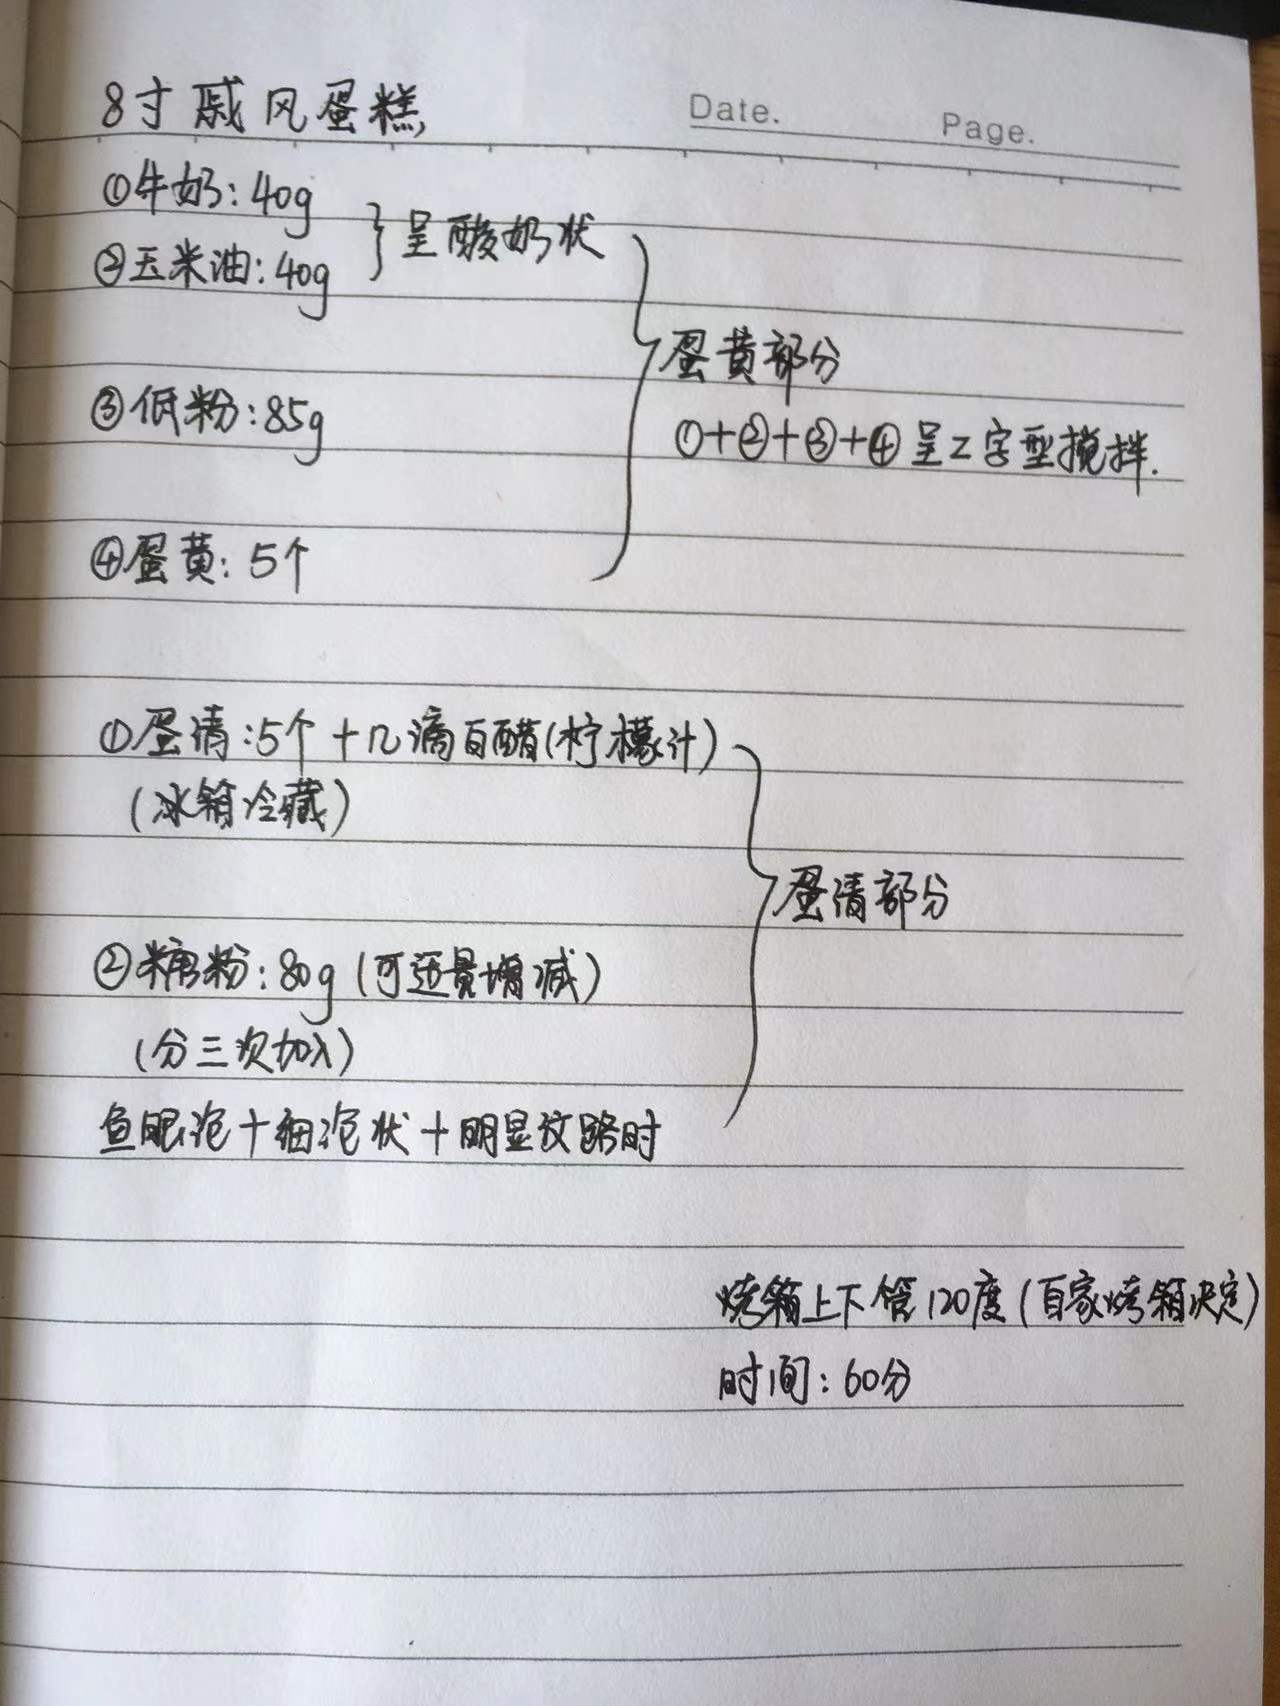 8寸戚风蛋糕
Date.
Page.
①牛奶:40g
②玉米油:40g
呈酸奶状
③低粉:85g
④蛋黄:5个
蛋黄部分
①+②+③+④呈Z字型搅拌.
①蛋清:5个+几滴白醋(柠檬汁)
(冰箱冷藏)
②糖粉:80g(可适量增减)
(分三次加入)
鱼眼泡+细泡状+明显纹路时
蛋清部分
烤箱上下管120度(自家烤箱决定)
时间:60分